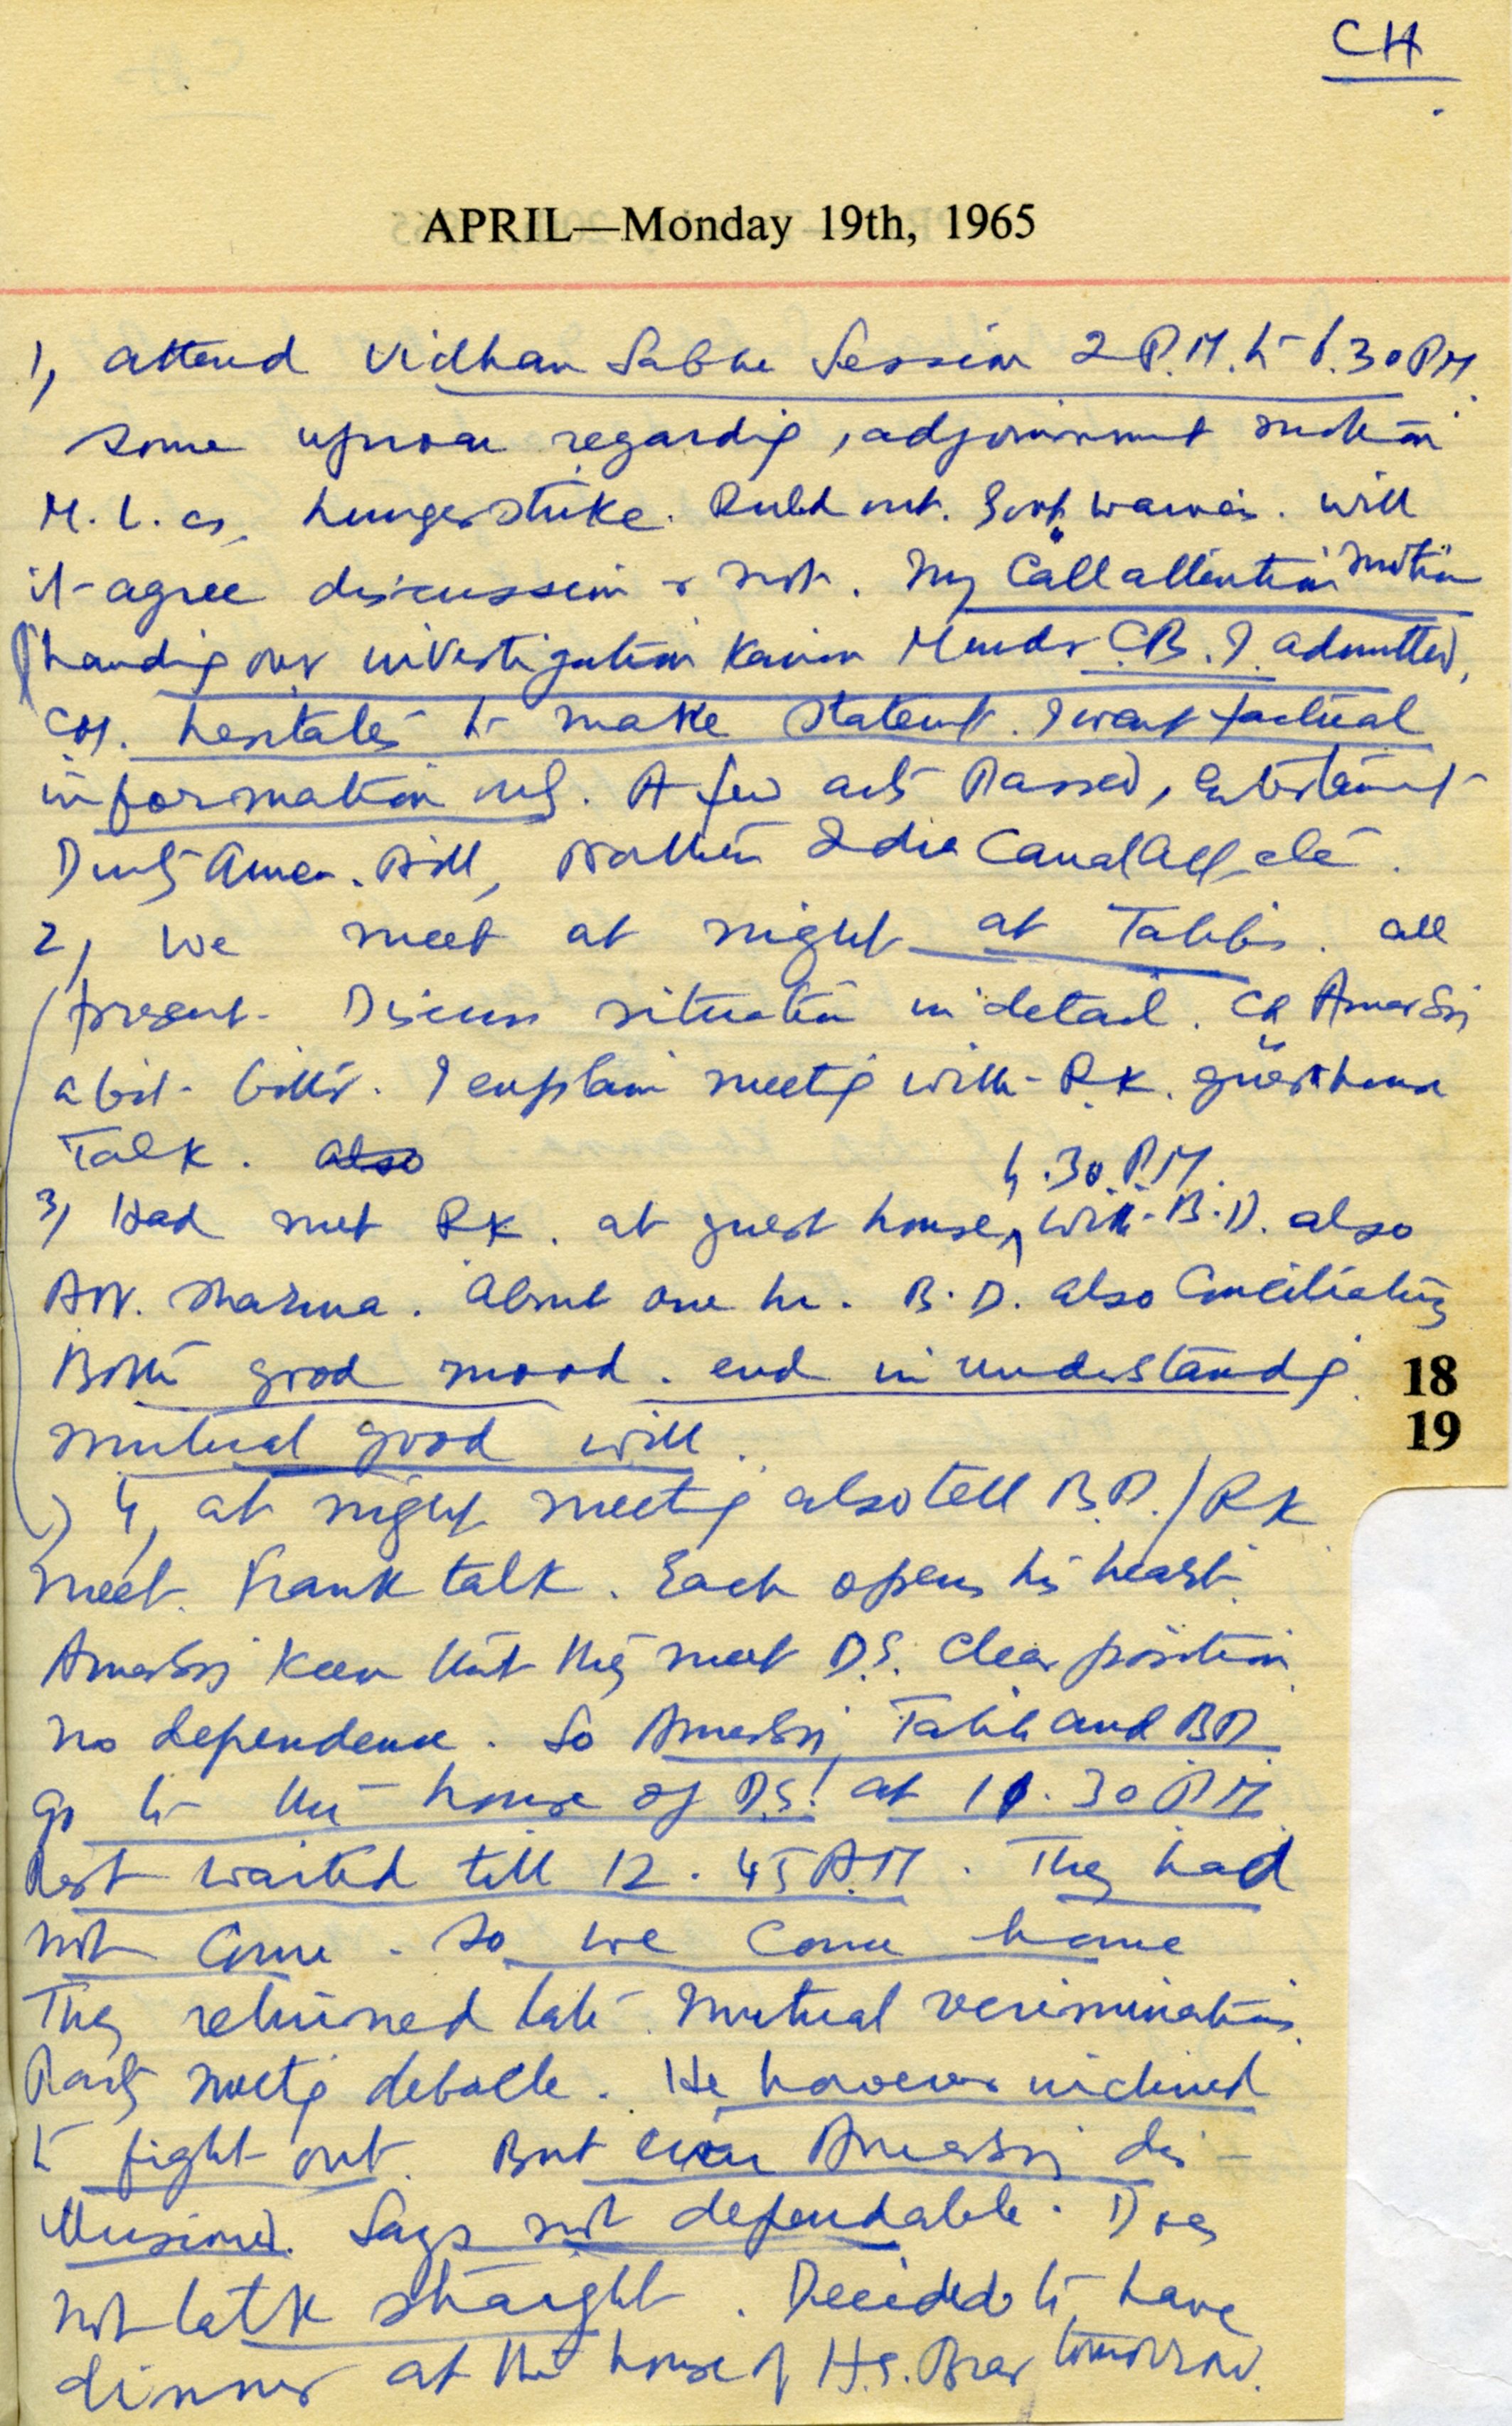 CH
APRIL—Monday 19th, 1965
1, attend Vidhan Sabha Session 2 P.M. to 6.30 PM
Some uproar regarding, adjournment motion
M.L.As, hunger strike. Ruled out. Govt. will
it agree discussion or not. My "Call attention" motion
handing over investigation Kairon Murder C.B.I. admitted,
CM. hesitates to make statement. I want factual
information only. A few acts Passed, Entertainment
Duty Amen. Bill, Northern India Canal etc.
2, We meet at night at Tabib's. all
present. Discuss situation in detail. Ch Amar Si
a bit bitter. I explain meeting with R.K. guest house
Talk.
4.30 P.M.
3, Had met R.K. at guest house, with B.D. also
Sharma. About one hr. B.D. also Conciliating
Both good mood. end in understanding
mutual good will.
18
19
4, at night meeting also tell B.D./RK
meet. Frank talk. Each opens his heart.
Amar Si keen that they meet D.S. Clear position
no dependence. So Amar Si, Tabib and BD
go to the house of D.S. at 10.30 P.M.
Rest waited till 12.45 A.M. They had
not come. So we come home
They returned late. Mutual recriminations.
Party meeting debacle. He however inclined
to fight out. But even Amar Si dis-
illusioned. Says not dependable. Does
not talk straight. Decided to have
dinner at the house of H.S. Brar tomorrow.